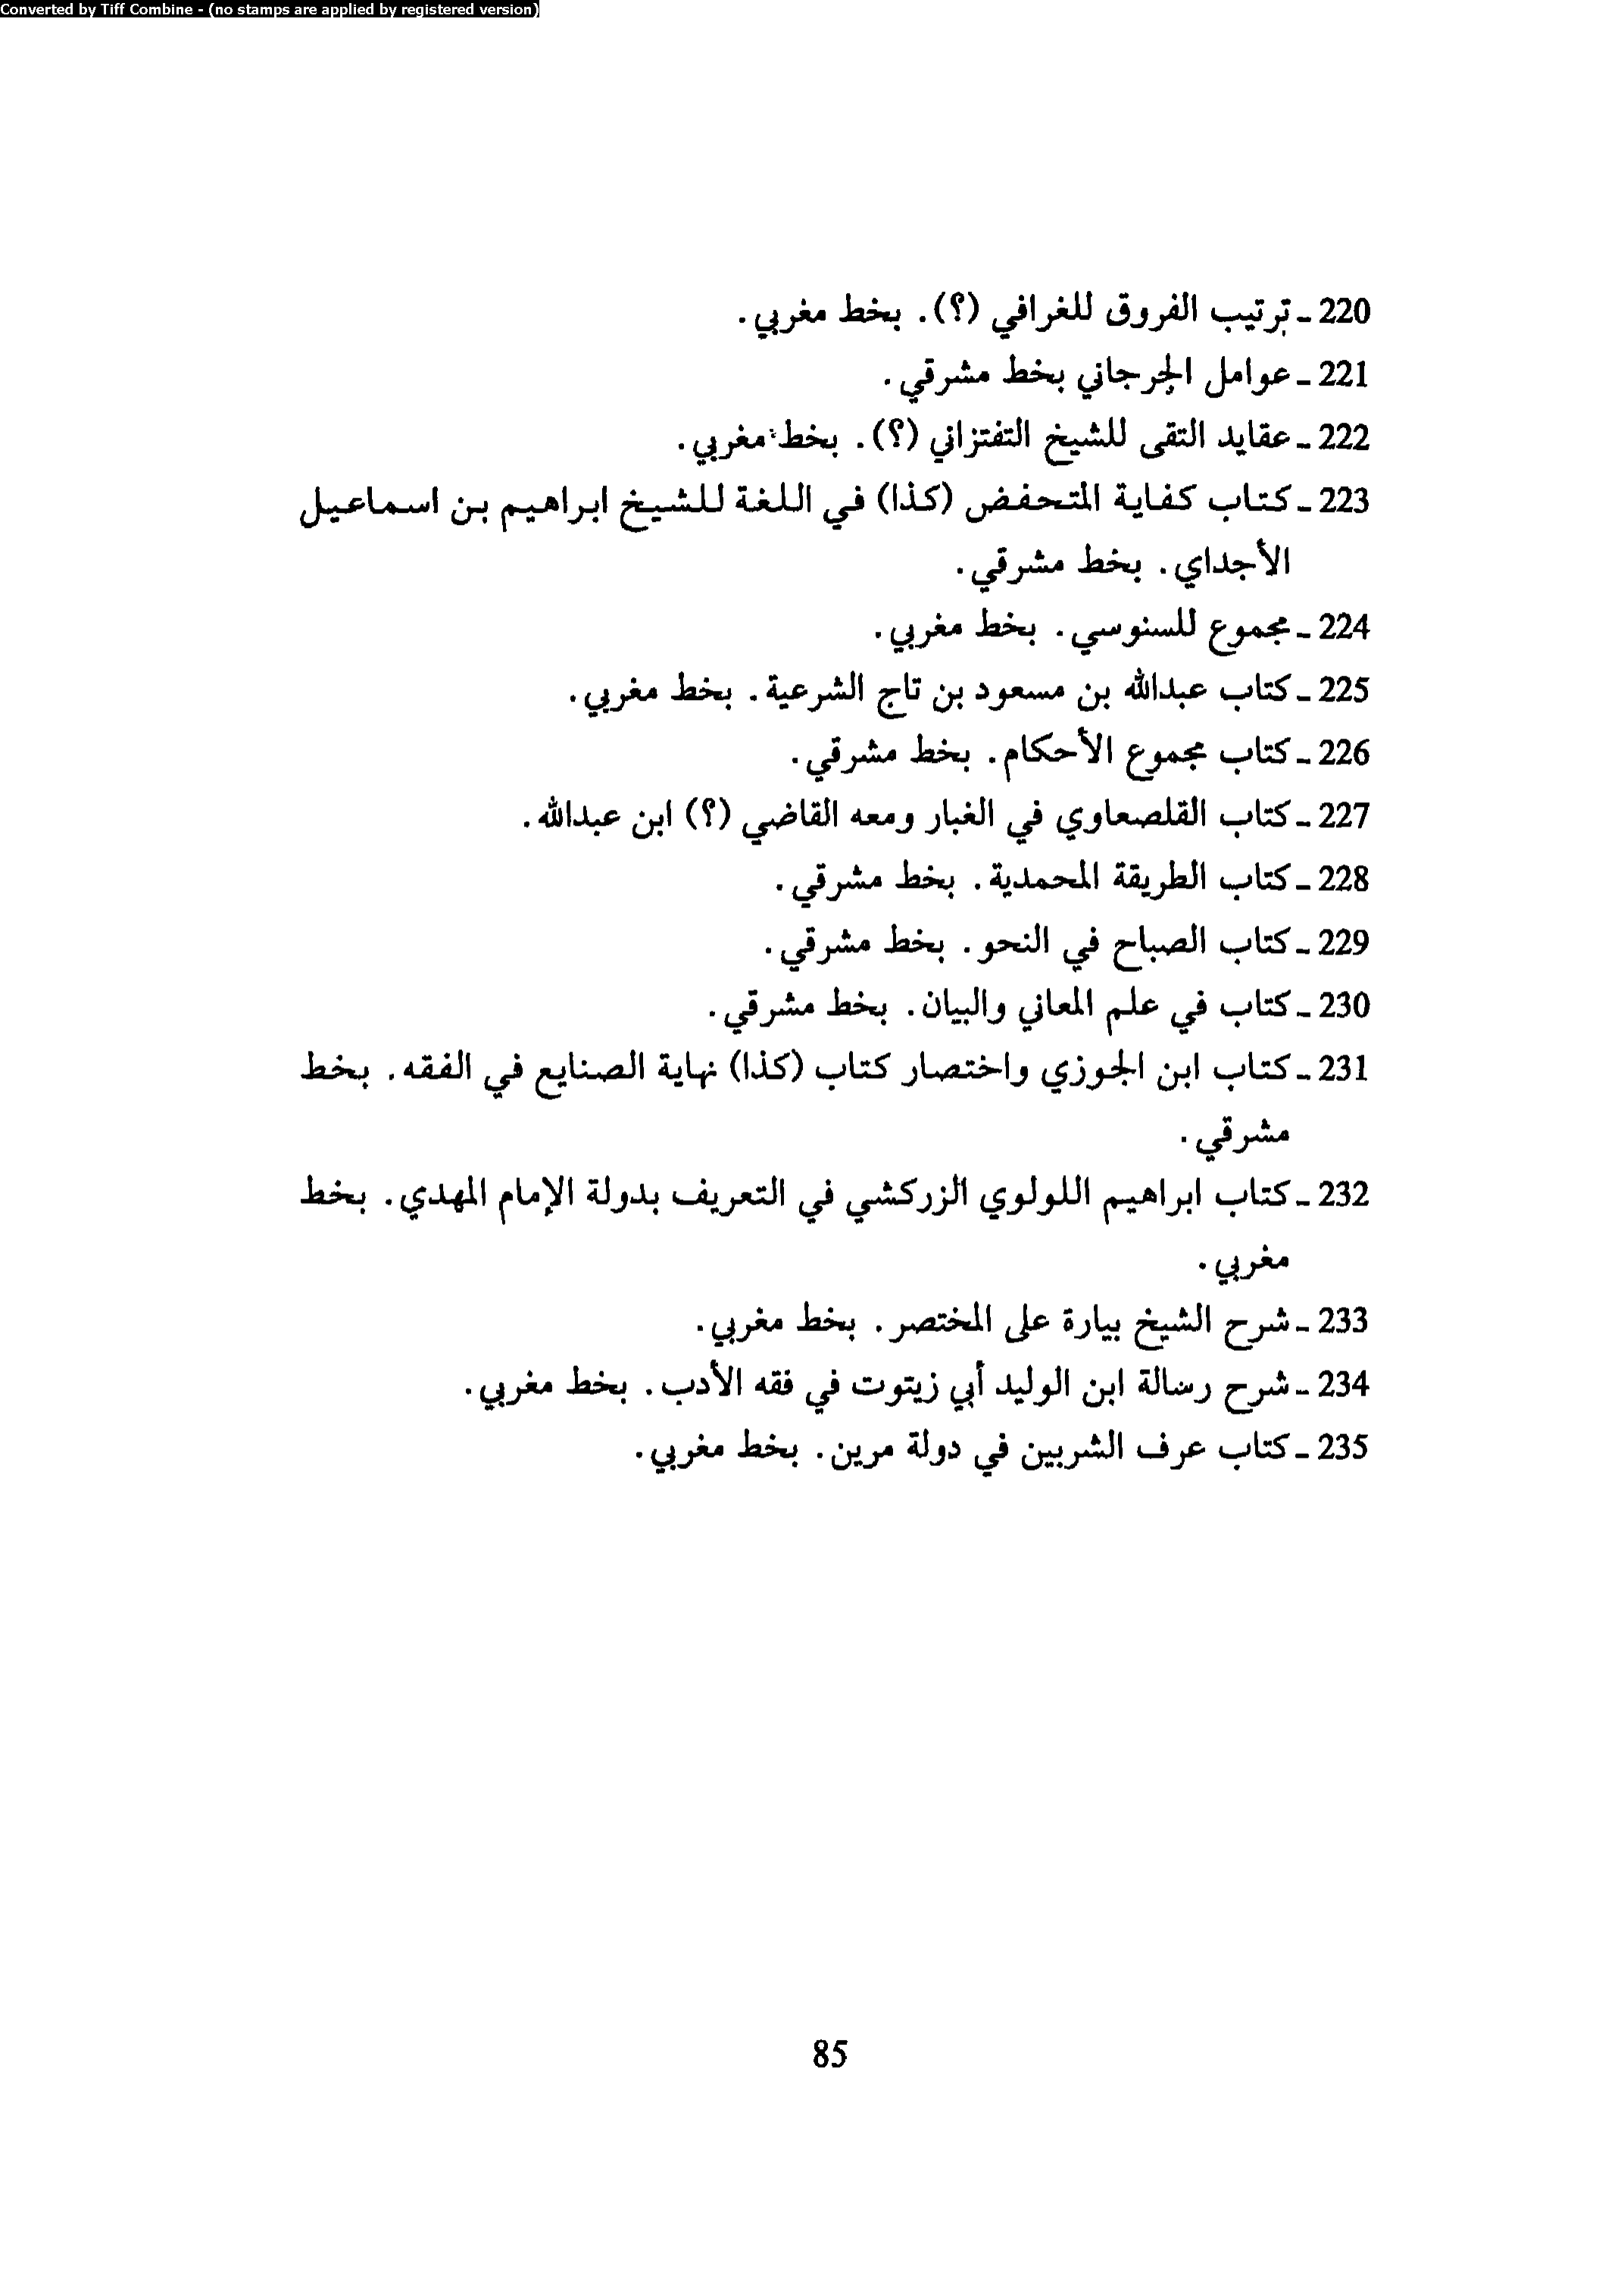 Converted by Tiff Combine - (no stamps are applied by registered version)
220 ـ ترتيب الفروق للغرافي (؟). بخط مغربي.
221 ـ عوامل الجرجاني بخط مشرقي.
222 ـ عقايد التقى للشيخ التفتزاني (؟). بخط مغربي.
223 ـ كتاب كفاية المتحفض (كذا) في اللغة للشيخ ابراهيم بن اسماعيل
الأجداي. بخط مشرقي.
224 ـ مجموع للسنوسي. بخط مغربي.
225 ـ كتاب عبدالله بن مسعود بن تاج الشرعية. بخط مغربي.
226 ـ كتاب مجموع الأحكام. بخط مشرقي.
227 ـ كتاب القلصعاوي في الغبار ومعه القاضي (؟) ابن عبدالله.
228 ـ كتاب الطريقة المحمدية. بخط مشرقي.
229 ـ كتاب الصباح في النحو. بخط مشرقي.
230 ـ كتاب في علم المعاني والبيان. بخط مشرقي.
231 ـ كتاب ابن الجوزي واختصار كتاب (كذا) نهاية الصنايع في الفقه. بخط
مشرقي.
232 ـ كتاب ابراهيم اللولوي الزركشي في التعريف بدولة الإمام المهدي. بخط
مغربي.
233 ـ شرح الشيخ بيارة على المختصر. بخط مغربي.
234 ـ شرح رسالة ابن الوليد أبي زيتوت في فقه الأدب. بخط مغربي.
235 ـ كتاب عرف الشربين في دولة مرين. بخط مغربي.
85